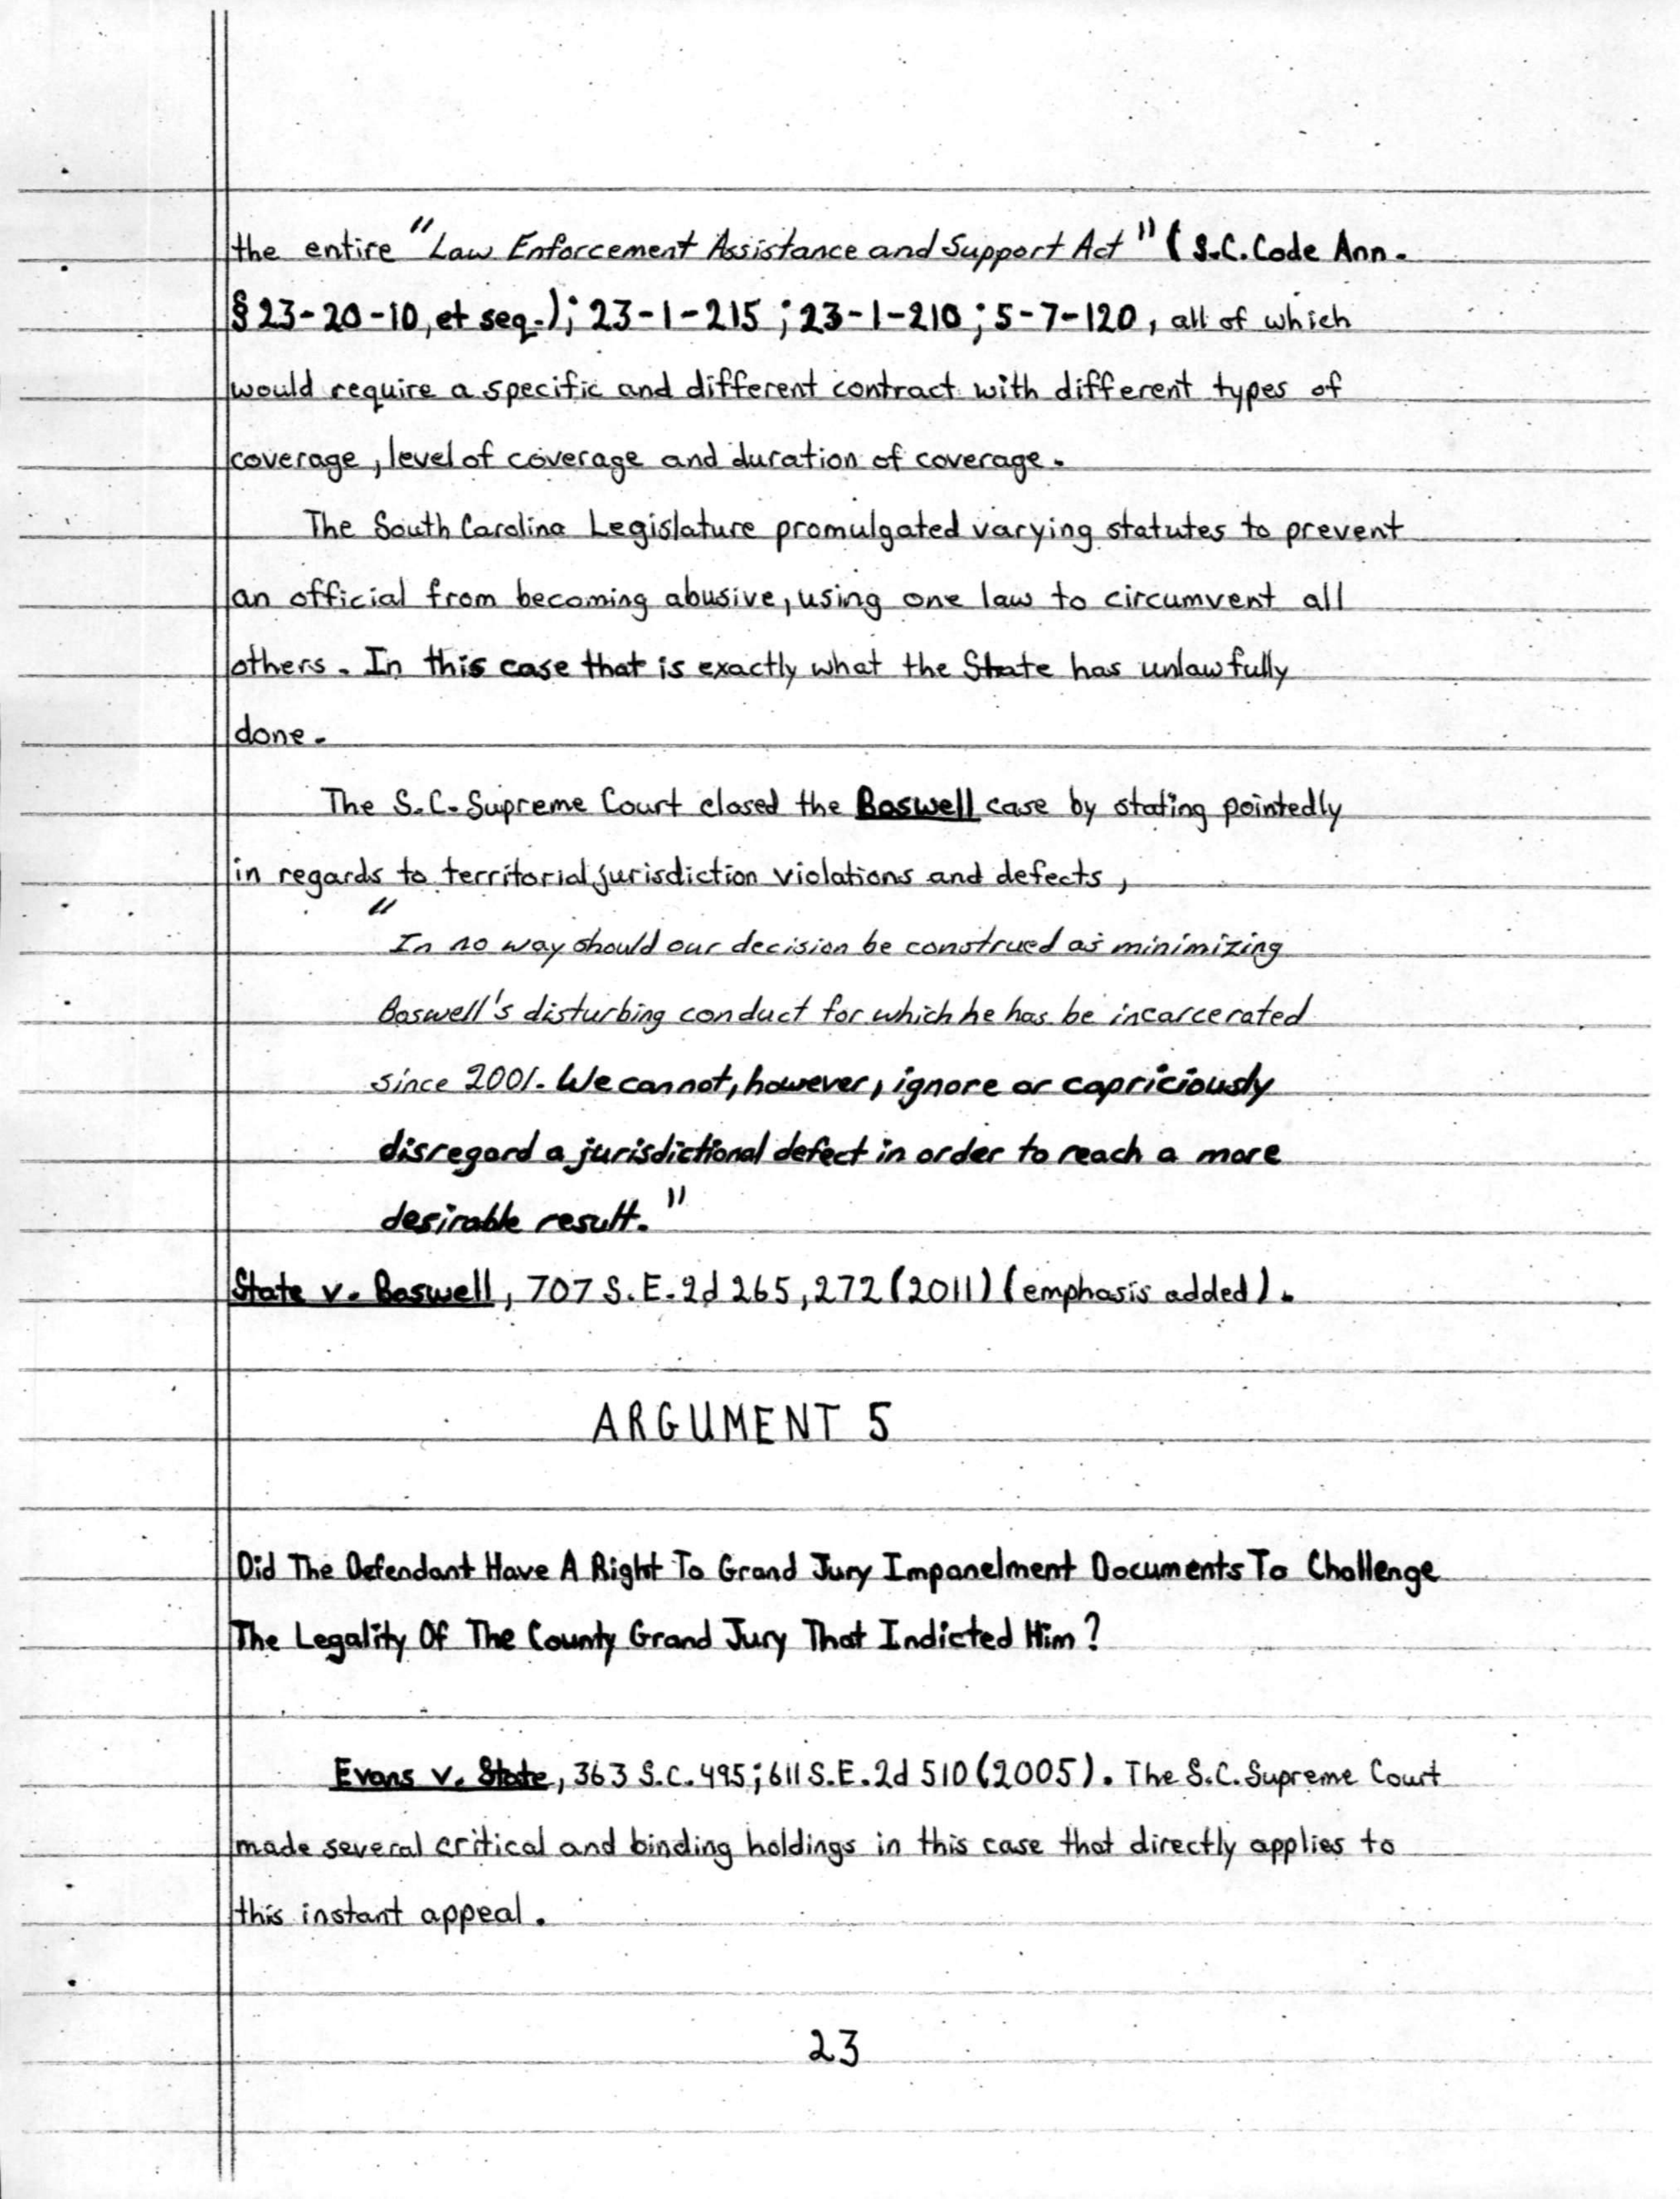 the entire "Law Enforcement Assistance and Support Act" (S.C. Code Ann.
§ 23-20-10, et seq.); 23-1-215; 23-1-210; 5-7-120, all of which
would require a specific and different contract with different types of
coverage, level of coverage and duration of coverage.
The South Carolina Legislature promulgated varying statutes to prevent
an official from becoming abusive, using one law to circumvent all
others. In this case that is exactly what the State has unlawfully
done.
The S.C. Supreme Court closed the Boswell case by stating pointedly
in regards to territorial jurisdiction violations and defects,
"In no way should our decision be construed as minimizing
Boswell's disturbing conduct for which he has be incarcerated
since 2001. We cannot, however, ignore or capriciously
disregard a jurisdictional defect in order to reach a more
desirable result."
State v. Boswell, 707 S.E.2d 265, 272 (2011) (emphasis added).
ARGUMENT 5
Did The Defendant Have A Right To Grand Jury Impanelment Documents To Challenge
The Legality Of The County Grand Jury That Indicted Him?
Evans v. State, 363 S.C. 495; 611 S.E.2d 510 (2005). The S.C. Supreme Court
made several critical and binding holdings in this case that directly applies to
this instant appeal.
23